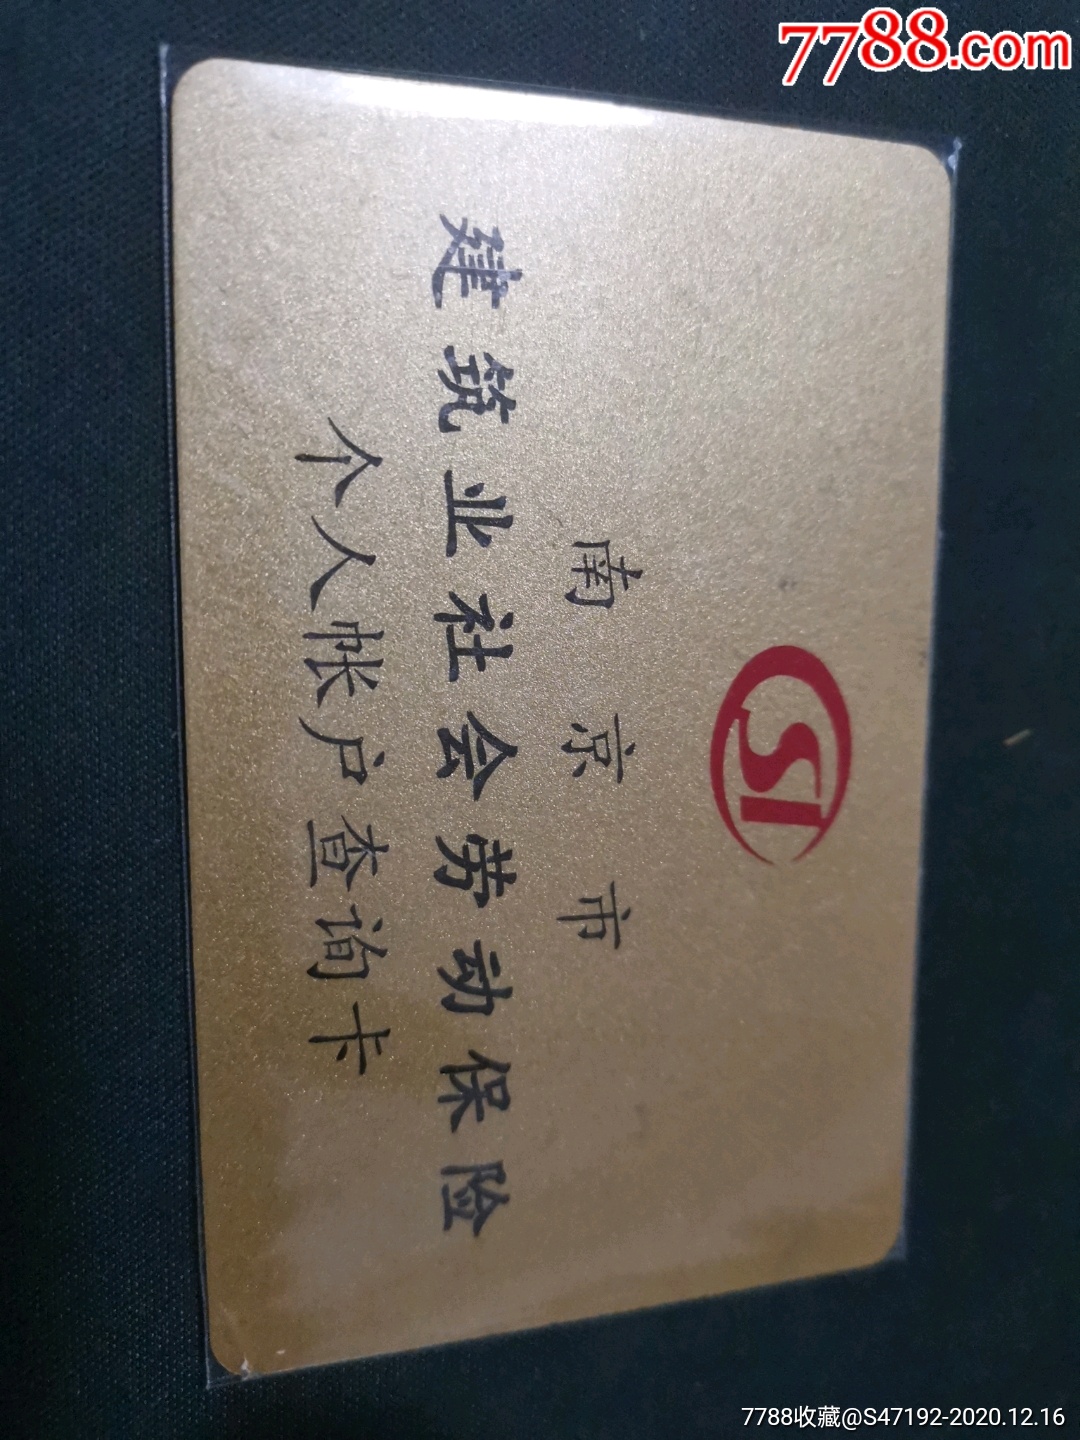 7788.com
CSI
南京市
建筑业社会劳动保险
个人帐户查询卡
7788收藏@S47192-2020.12.16